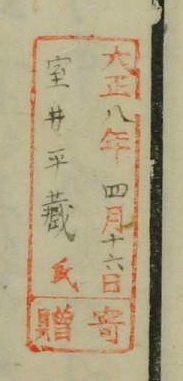 大正八年四月十六日
室井平藏氏
寄贈